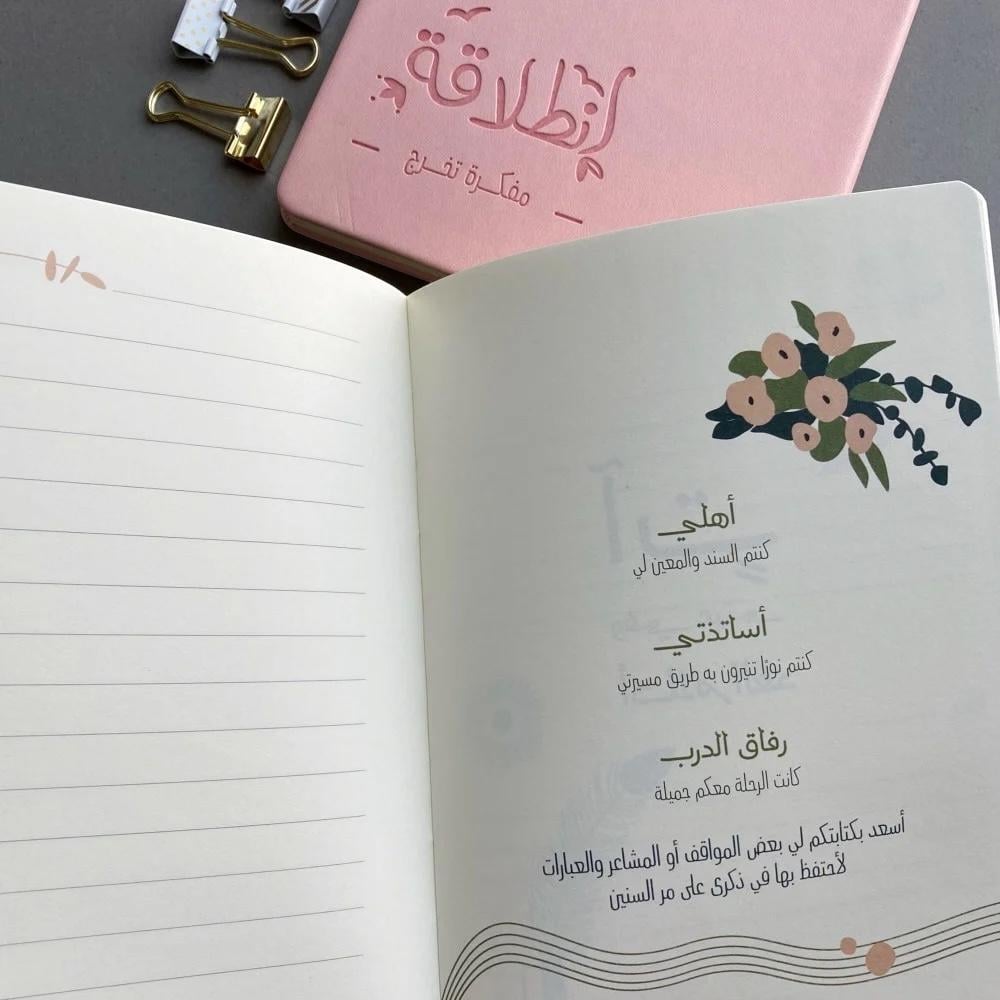 انطلاقة
مفكرة تخرج
أهلي
كنتم السند والمعين لي
أساتذتي
كنتم نورًا تنيرون به طريق مسيرتي
رفاق الدرب
كانت الرحلة معكم جميلة
أسعد بكتابتكم لي بعض المواقف أو المشاعر والعبارات
لأحتفظ بها في ذكرى على مر السنين